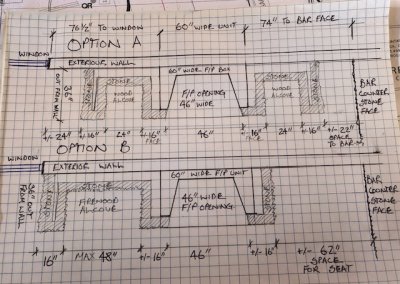 OR
76½" TO WINDOW
60" WIDE UNIT
74" TO BAR FACE
OPTION A
WINDOW
EXTERIOR WALL
60" WIDE F/P BOX
STONE
WOOD
ALCOVE
F/P OPENING
46" WIDE
STONE
WOOD
ALCOVE
36"
OUT FROM WALL
BAR
COUNTER
STONE
FACE
+/- 24"
+/- 16"
24"
+/- 16"
FACE
46"
+/- 16"
FACE
24"
+/- 16"
+/- 22"
SPACE
TO BAR
OPTION B
WINDOW
EXTERIOR WALL
60" WIDE F/P UNIT
STONE
FIREWOOD
ALCOVE
46" WIDE
F/P OPENING
36" OUT
FROM WALL
BAR
COUNTER
STONE
FACE
16"
MAX 48"
+/- 16"
46"
+/- 16"
+/- 62"
SPACE
FOR SEAT